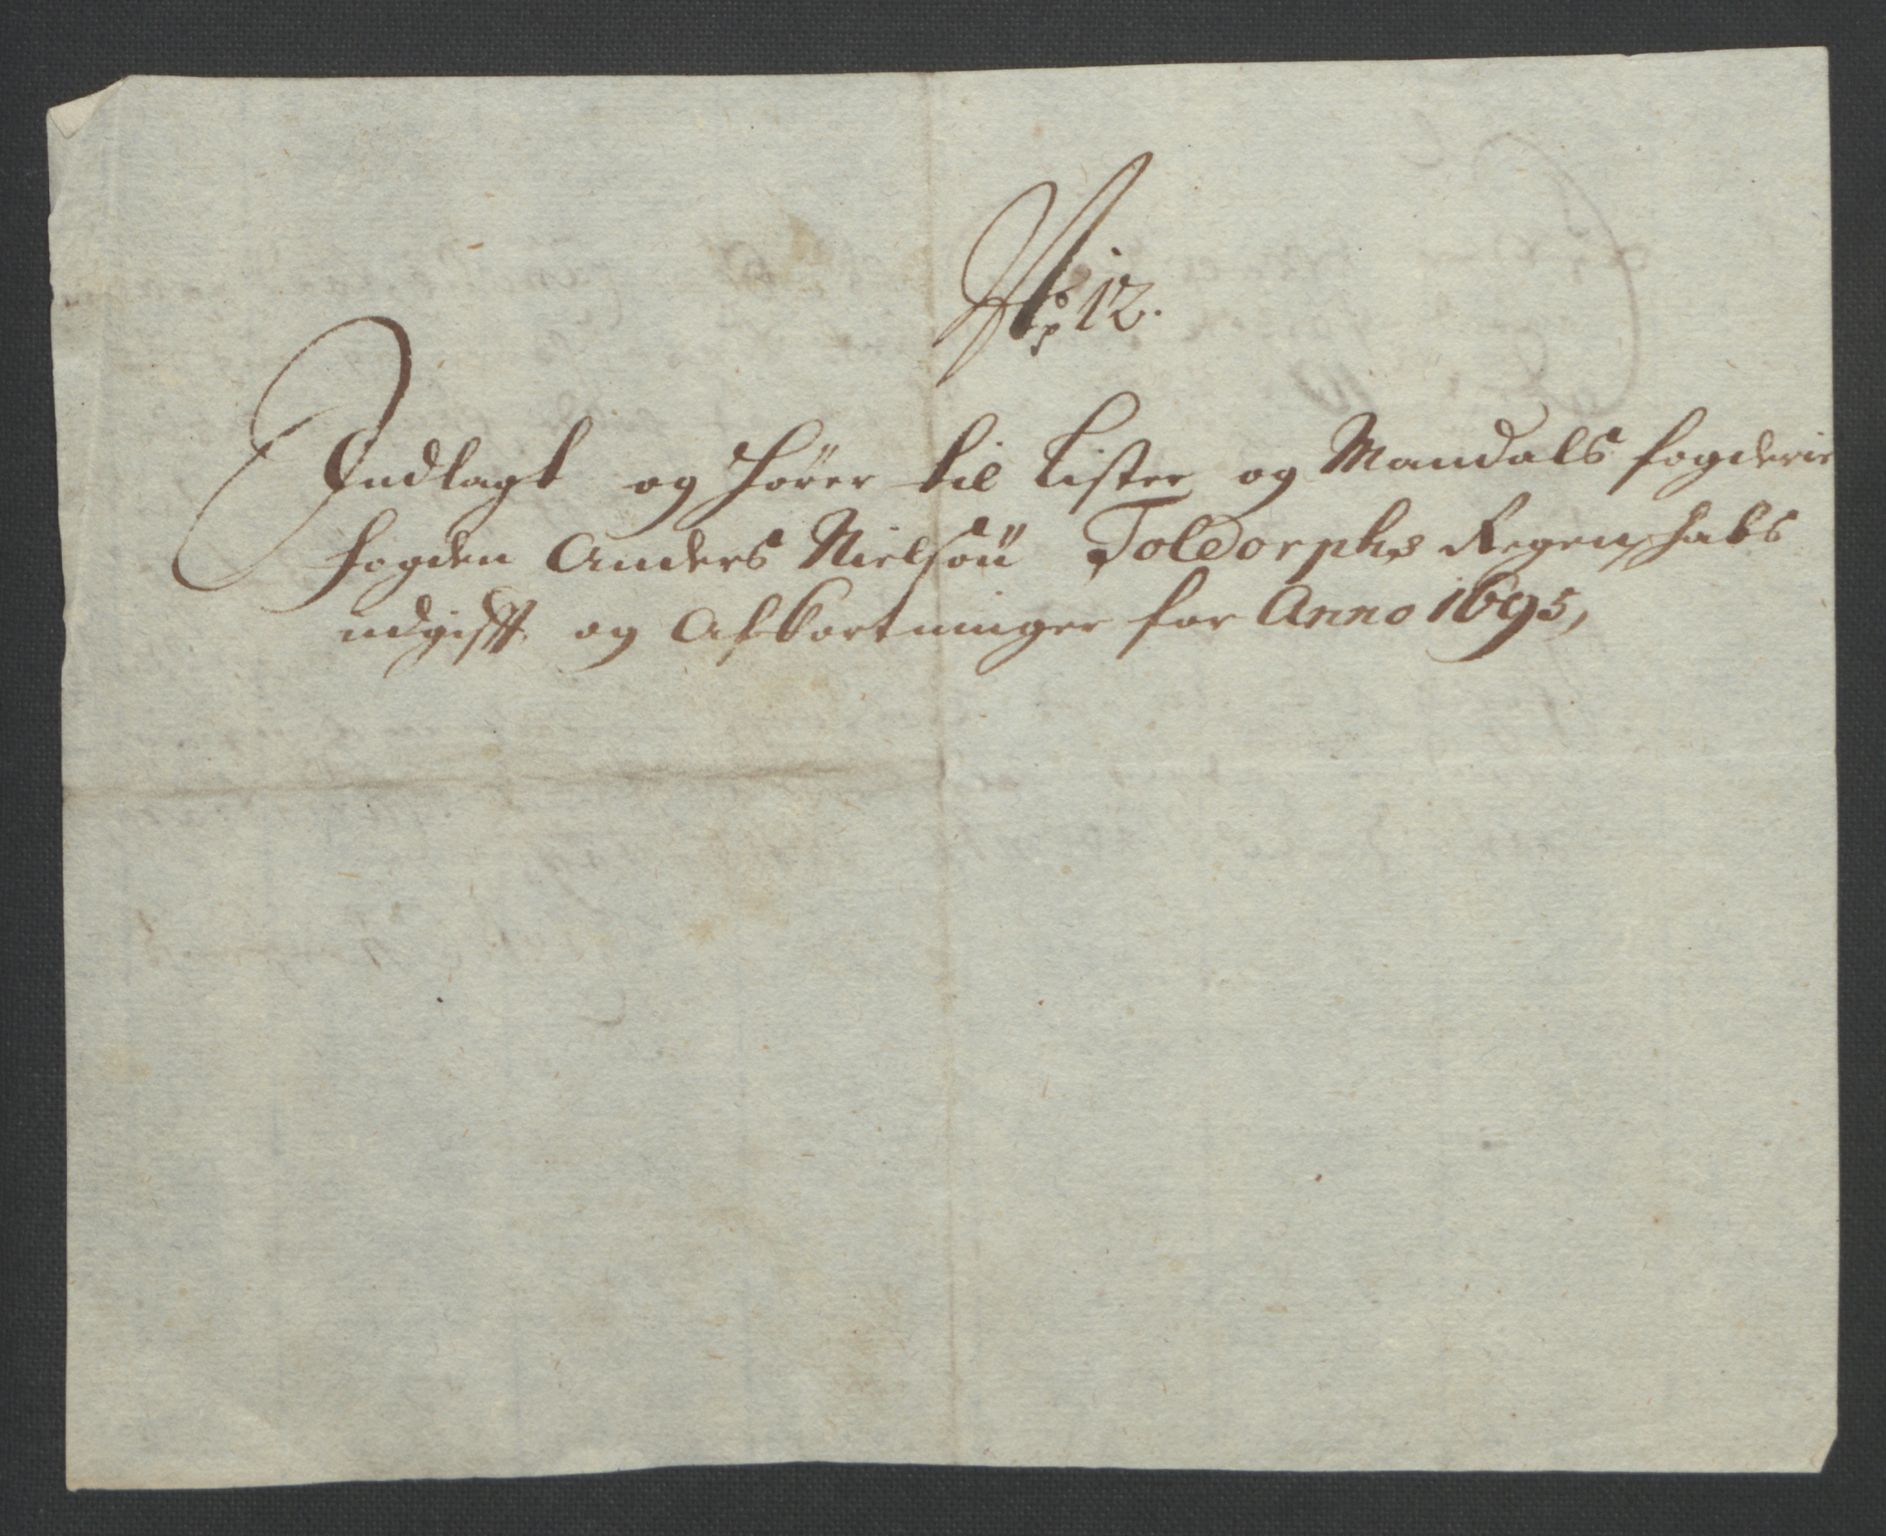 No: 12.
Indlagt og hører til Lister og Mandals fogderie
fogden Anders Nielsøn Toldorphs Regenschabs
udgifft og Afkortninger for Anno 1695,